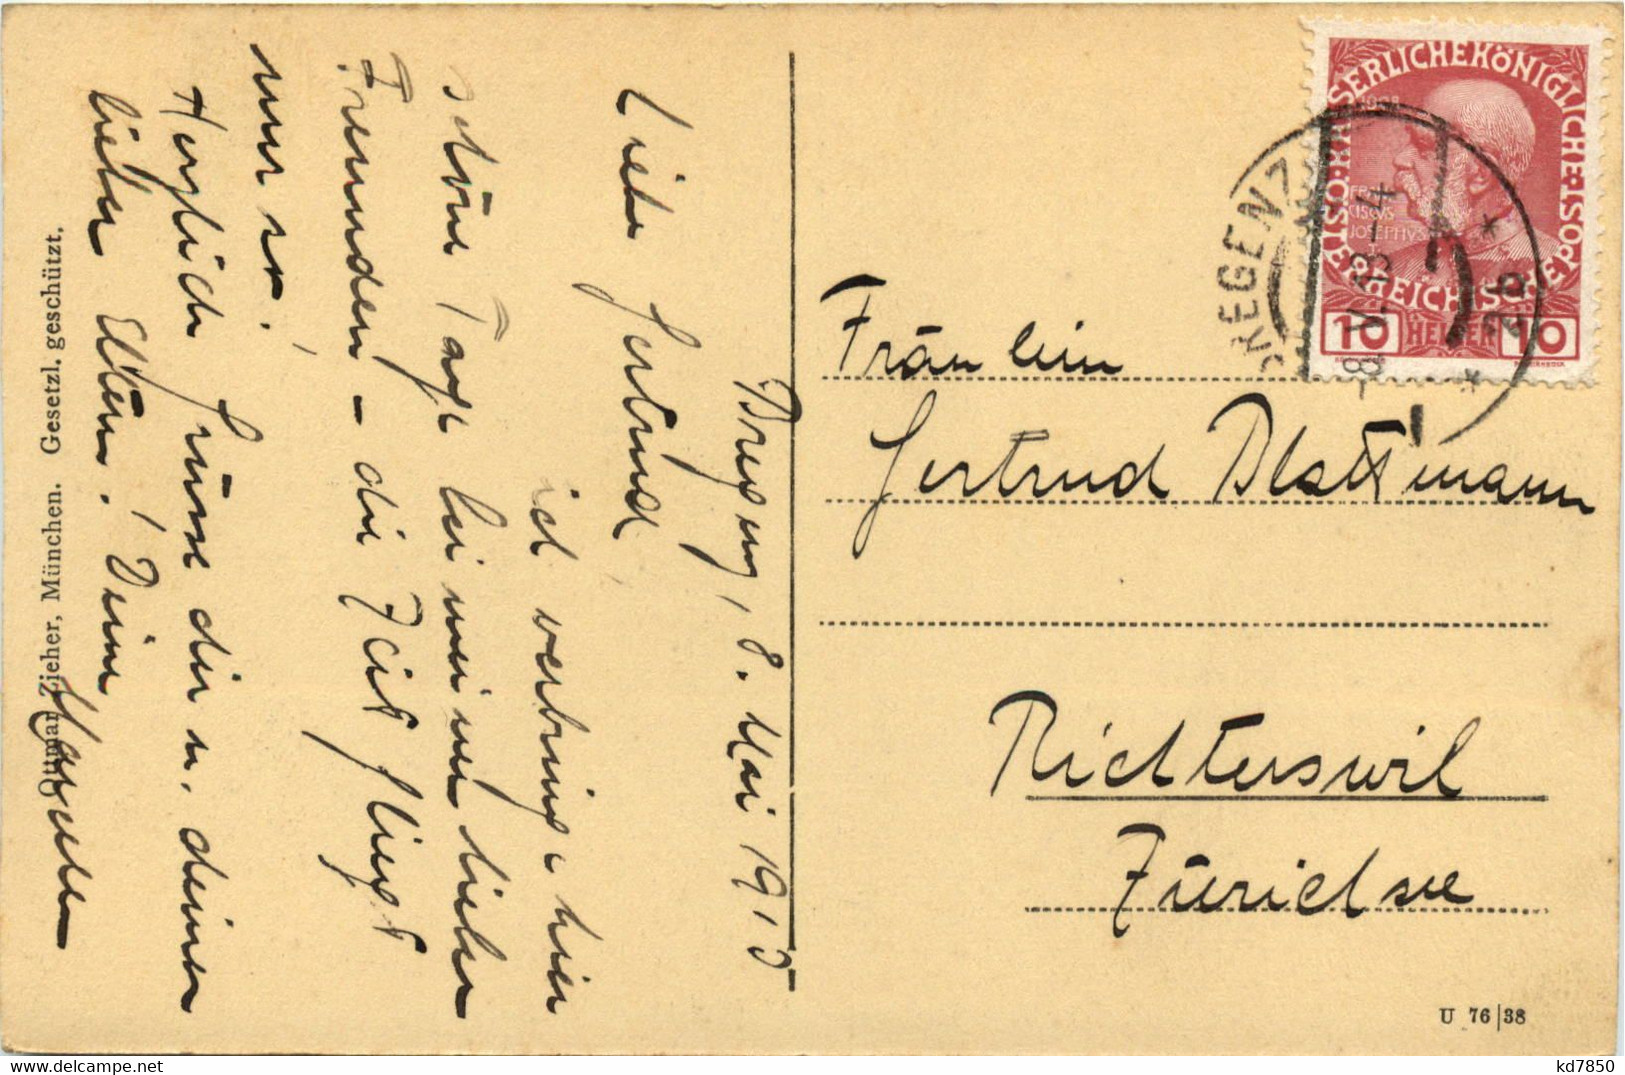 Bregenz, 8. Mai 1913
Liebe Gertrud,
ich verbringe hier
schöne Tage bei meinen lieben
Freunden – die Zeit fliegt
nur so.
Herzlich grüsse dich u. deinen
lieben Eltern. Deine
Ottmar Zieher, München. Gesetzl. geschützt.
ÖSTERREICHISCHE POST KAISERLICHE KÖNIGLICHE
1908
FRAN
CISCVS
JOSEPHVS I
10 HELLER 10
BREGENZ
-8 V 13-4
* 2b *
Fräulein
Gertrud Blattmann
Richterswil
Zürichsee
U 76/38
kd7850